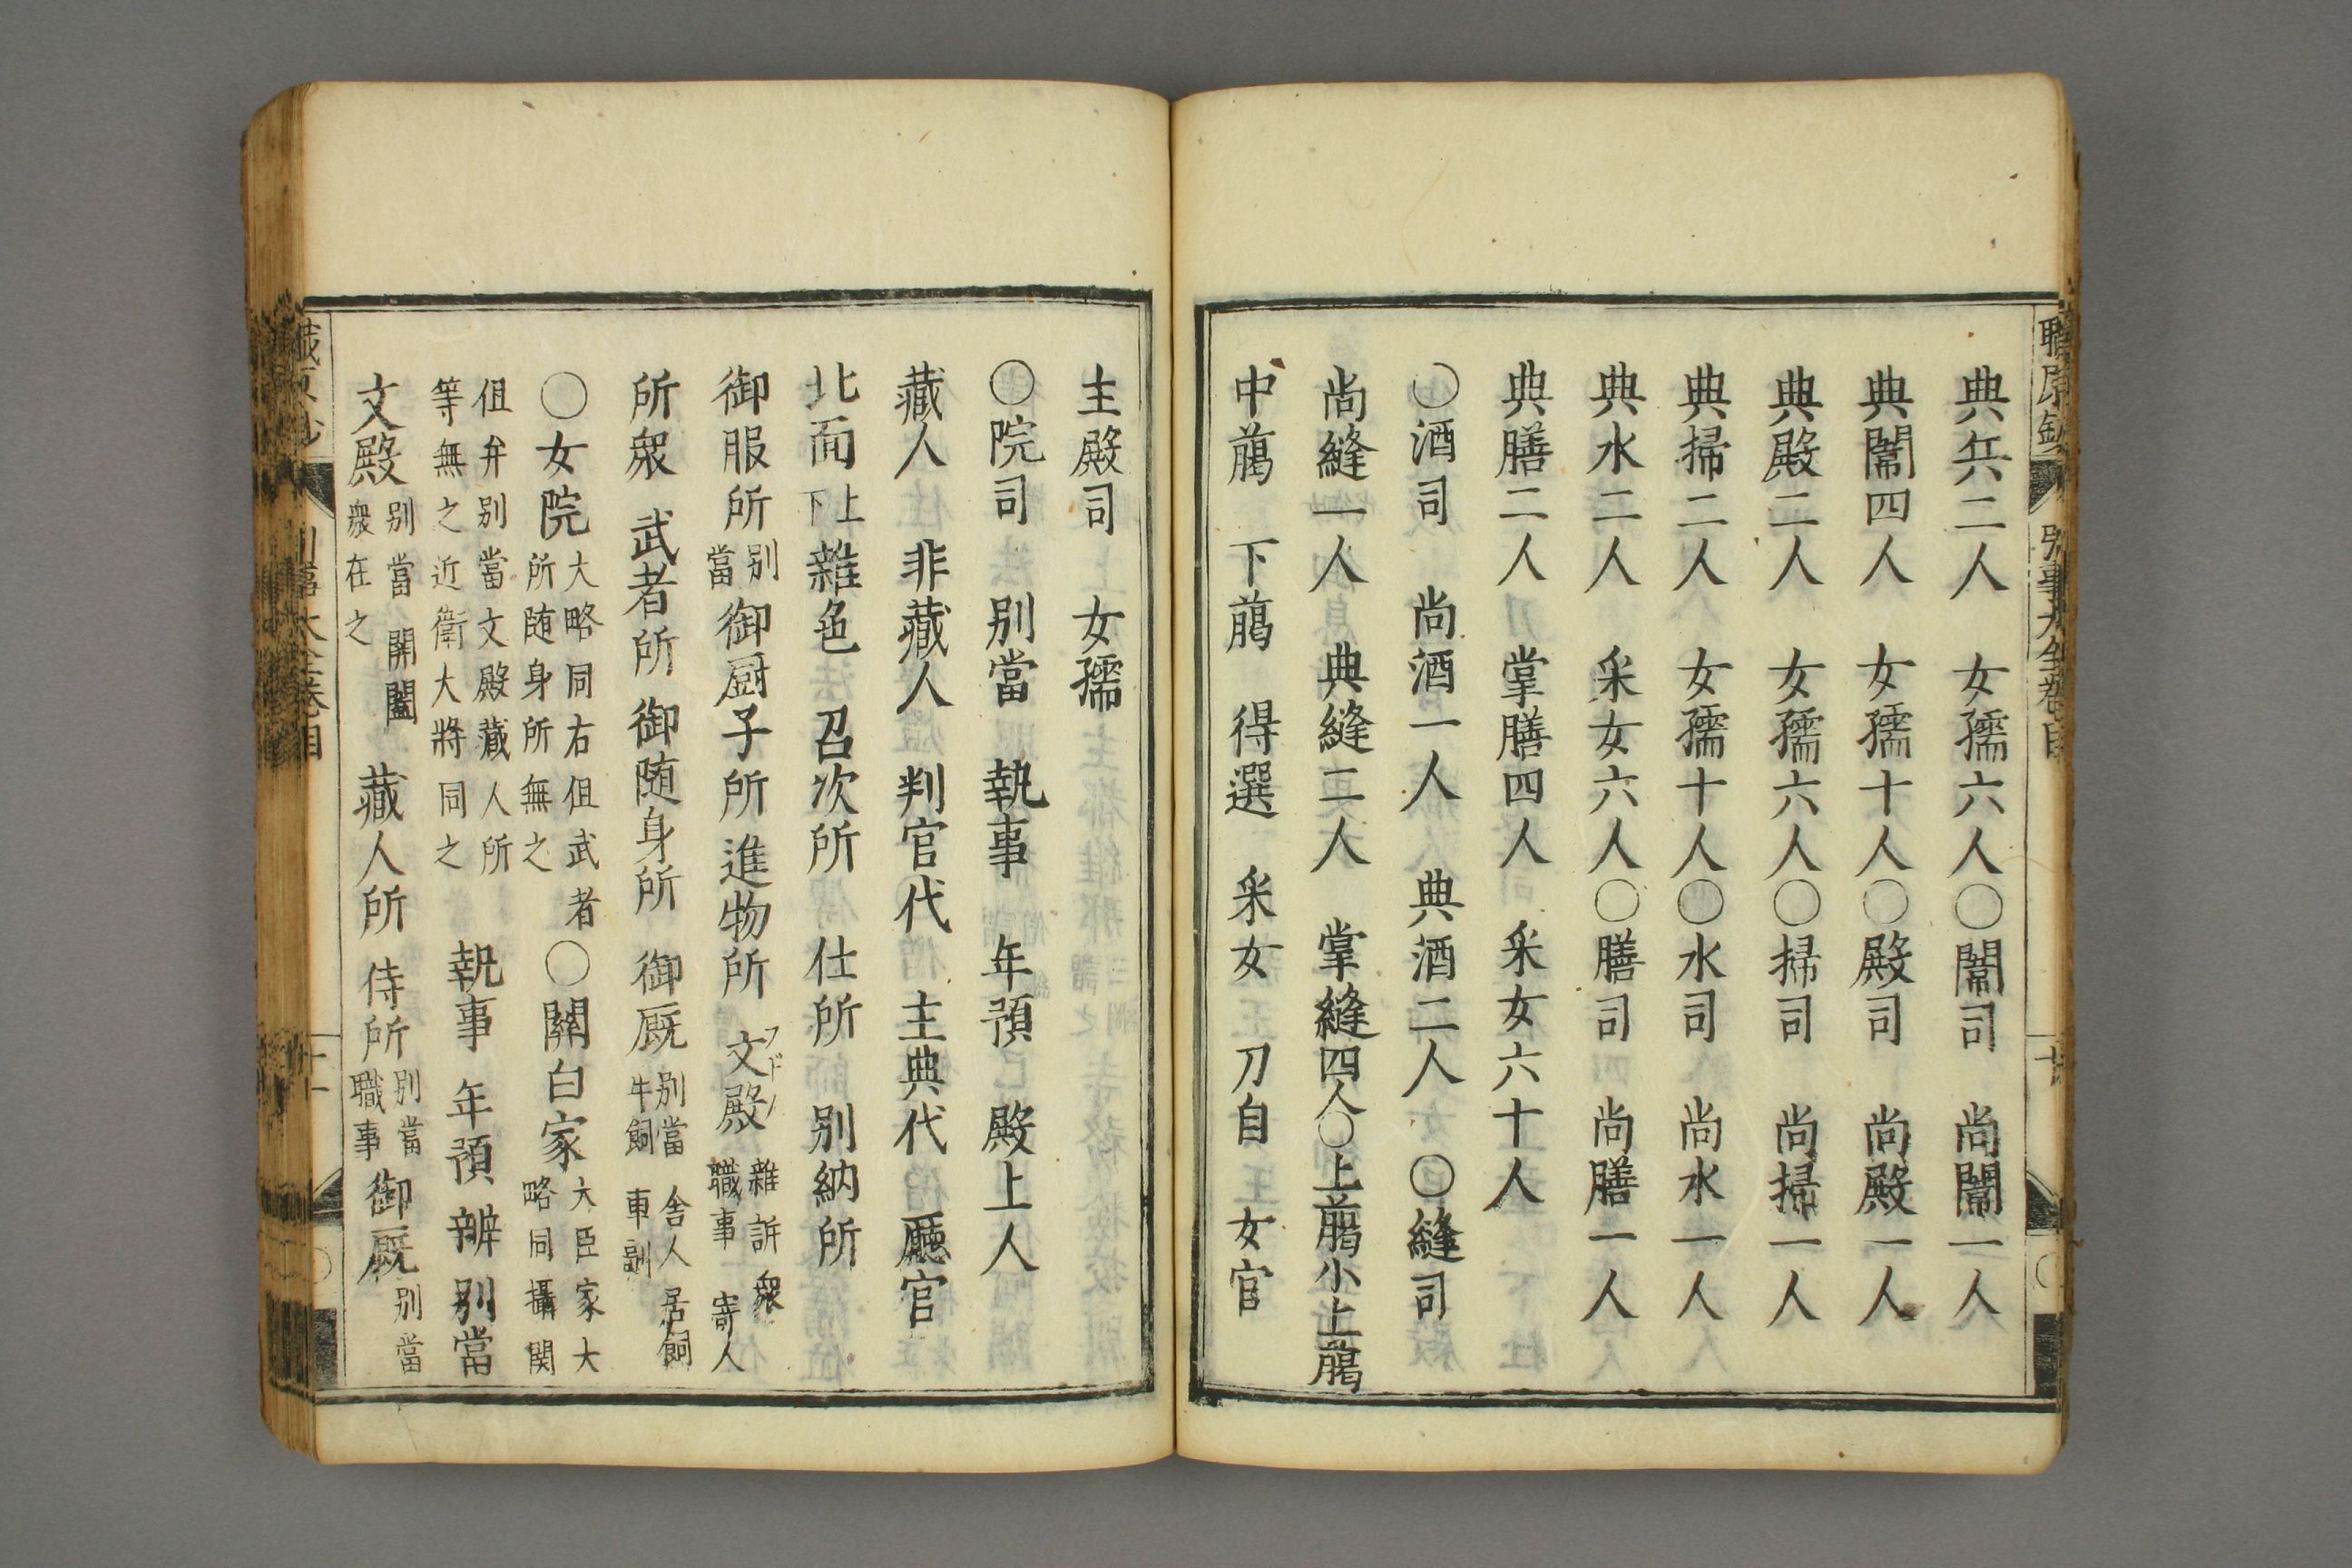 典兵二人　女孺六人〇闈司　尚闈一人
典闈四人　女孺十人〇殿司　尚殿一人
典殿二人　女孺六人〇掃司　尚掃一人
典掃二人　女孺十人〇水司　尚水一人
典水二人　采女六人〇膳司　尚膳一人
典膳二人　掌膳四人　采女六十人
〇酒司　尚酒一人　典酒二人　〇縫司
尚縫一人　典縫二人　掌縫四人〇上﨟小上﨟
中﨟　下﨟　得選　采女　刀自　女官
主殿司　女孺
〇院司　別當　執事　年預　殿上人
藏人　非藏人　判官代　主典代　廳官
北面上下　雜色　召次所　仕所　別納所
御服所別當　御厨子所　進物所　文殿フドノ　雜訴衆　寄人　職事
所衆　武者所　御随身所　御厩別當　舎人　居飼　牛飼　車副
〇女院大略同右但武者所随身所無之　〇關白家大臣家大略同攝関
但弁別當文殿藏人所等無之近衛大將同之　執事　年預　辨別當
文殿別當　開闔　衆在之　藏人所　侍所別當職事　御厩別當